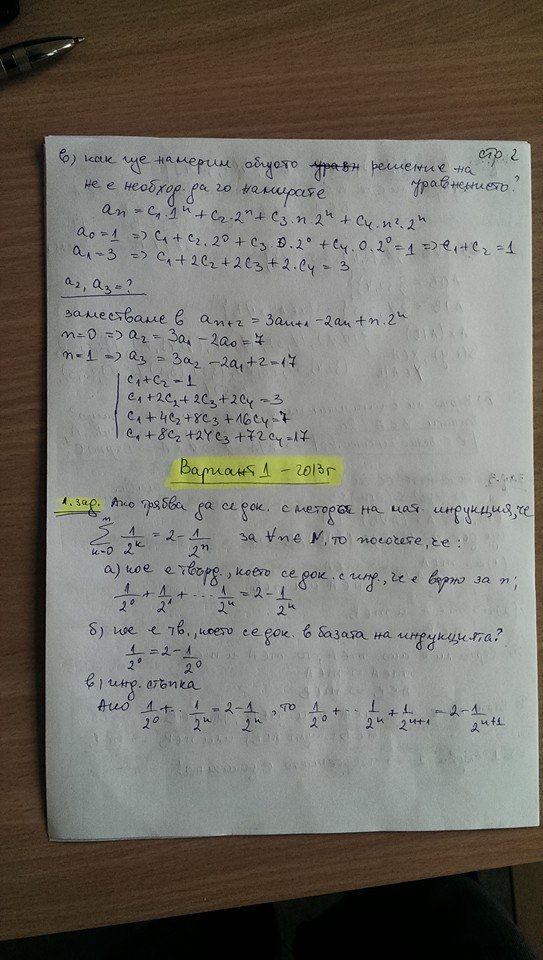 стр. 2
в) как ще намерим общото уравн решение на
не е необход. да го намирате уравнението?
an = c1.1^n + c2.2^n + c3.n.2^n + c4.n².2^n
a0=1 => c1 + c2.2^0 + c3.0.2^0 + c4.0.2^0 = 1 => c1+c2 = 1
a1=3 => c1 + 2c2 + 2c3 + 2.c4 = 3
a2, a3 = ?
заместване в an+2 = 3an+1 - 2an + n.2^n
n=0 => a2 = 3a1 - 2a0 = 7
n=1 => a3 = 3a2 - 2a1 + 2 = 17
c1+c2 = 1
c1 + 2c2 + 2c3 + 2c4 = 3
c1 + 4c2 + 8c3 + 16c4 = 7
c1 + 8c2 + 24c3 + 72c4 = 17
Вариант 1 - 2013г
1. зад. Ако трябва да се док. с методът на мат. индукция, че
n∑k=0 1/2^k = 2 - 1/2^n за ∀n∈N, то посочете, че:
а) кое е твърд., което се док. с инд., че е вярно за n;
1/2^0 + 1/2^1 + ... 1/2^n = 2 - 1/2^n
б) кое е тв., което се док. в базата на индукцията?
1/2^0 = 2 - 1/2^0
в) инд. стъпка
Ако 1/2^0 + .. 1/2^n = 2 - 1/2^n, то 1/2^0 + .. 1/2^n + 1/2^n+1 = 2 - 1/2^n+1